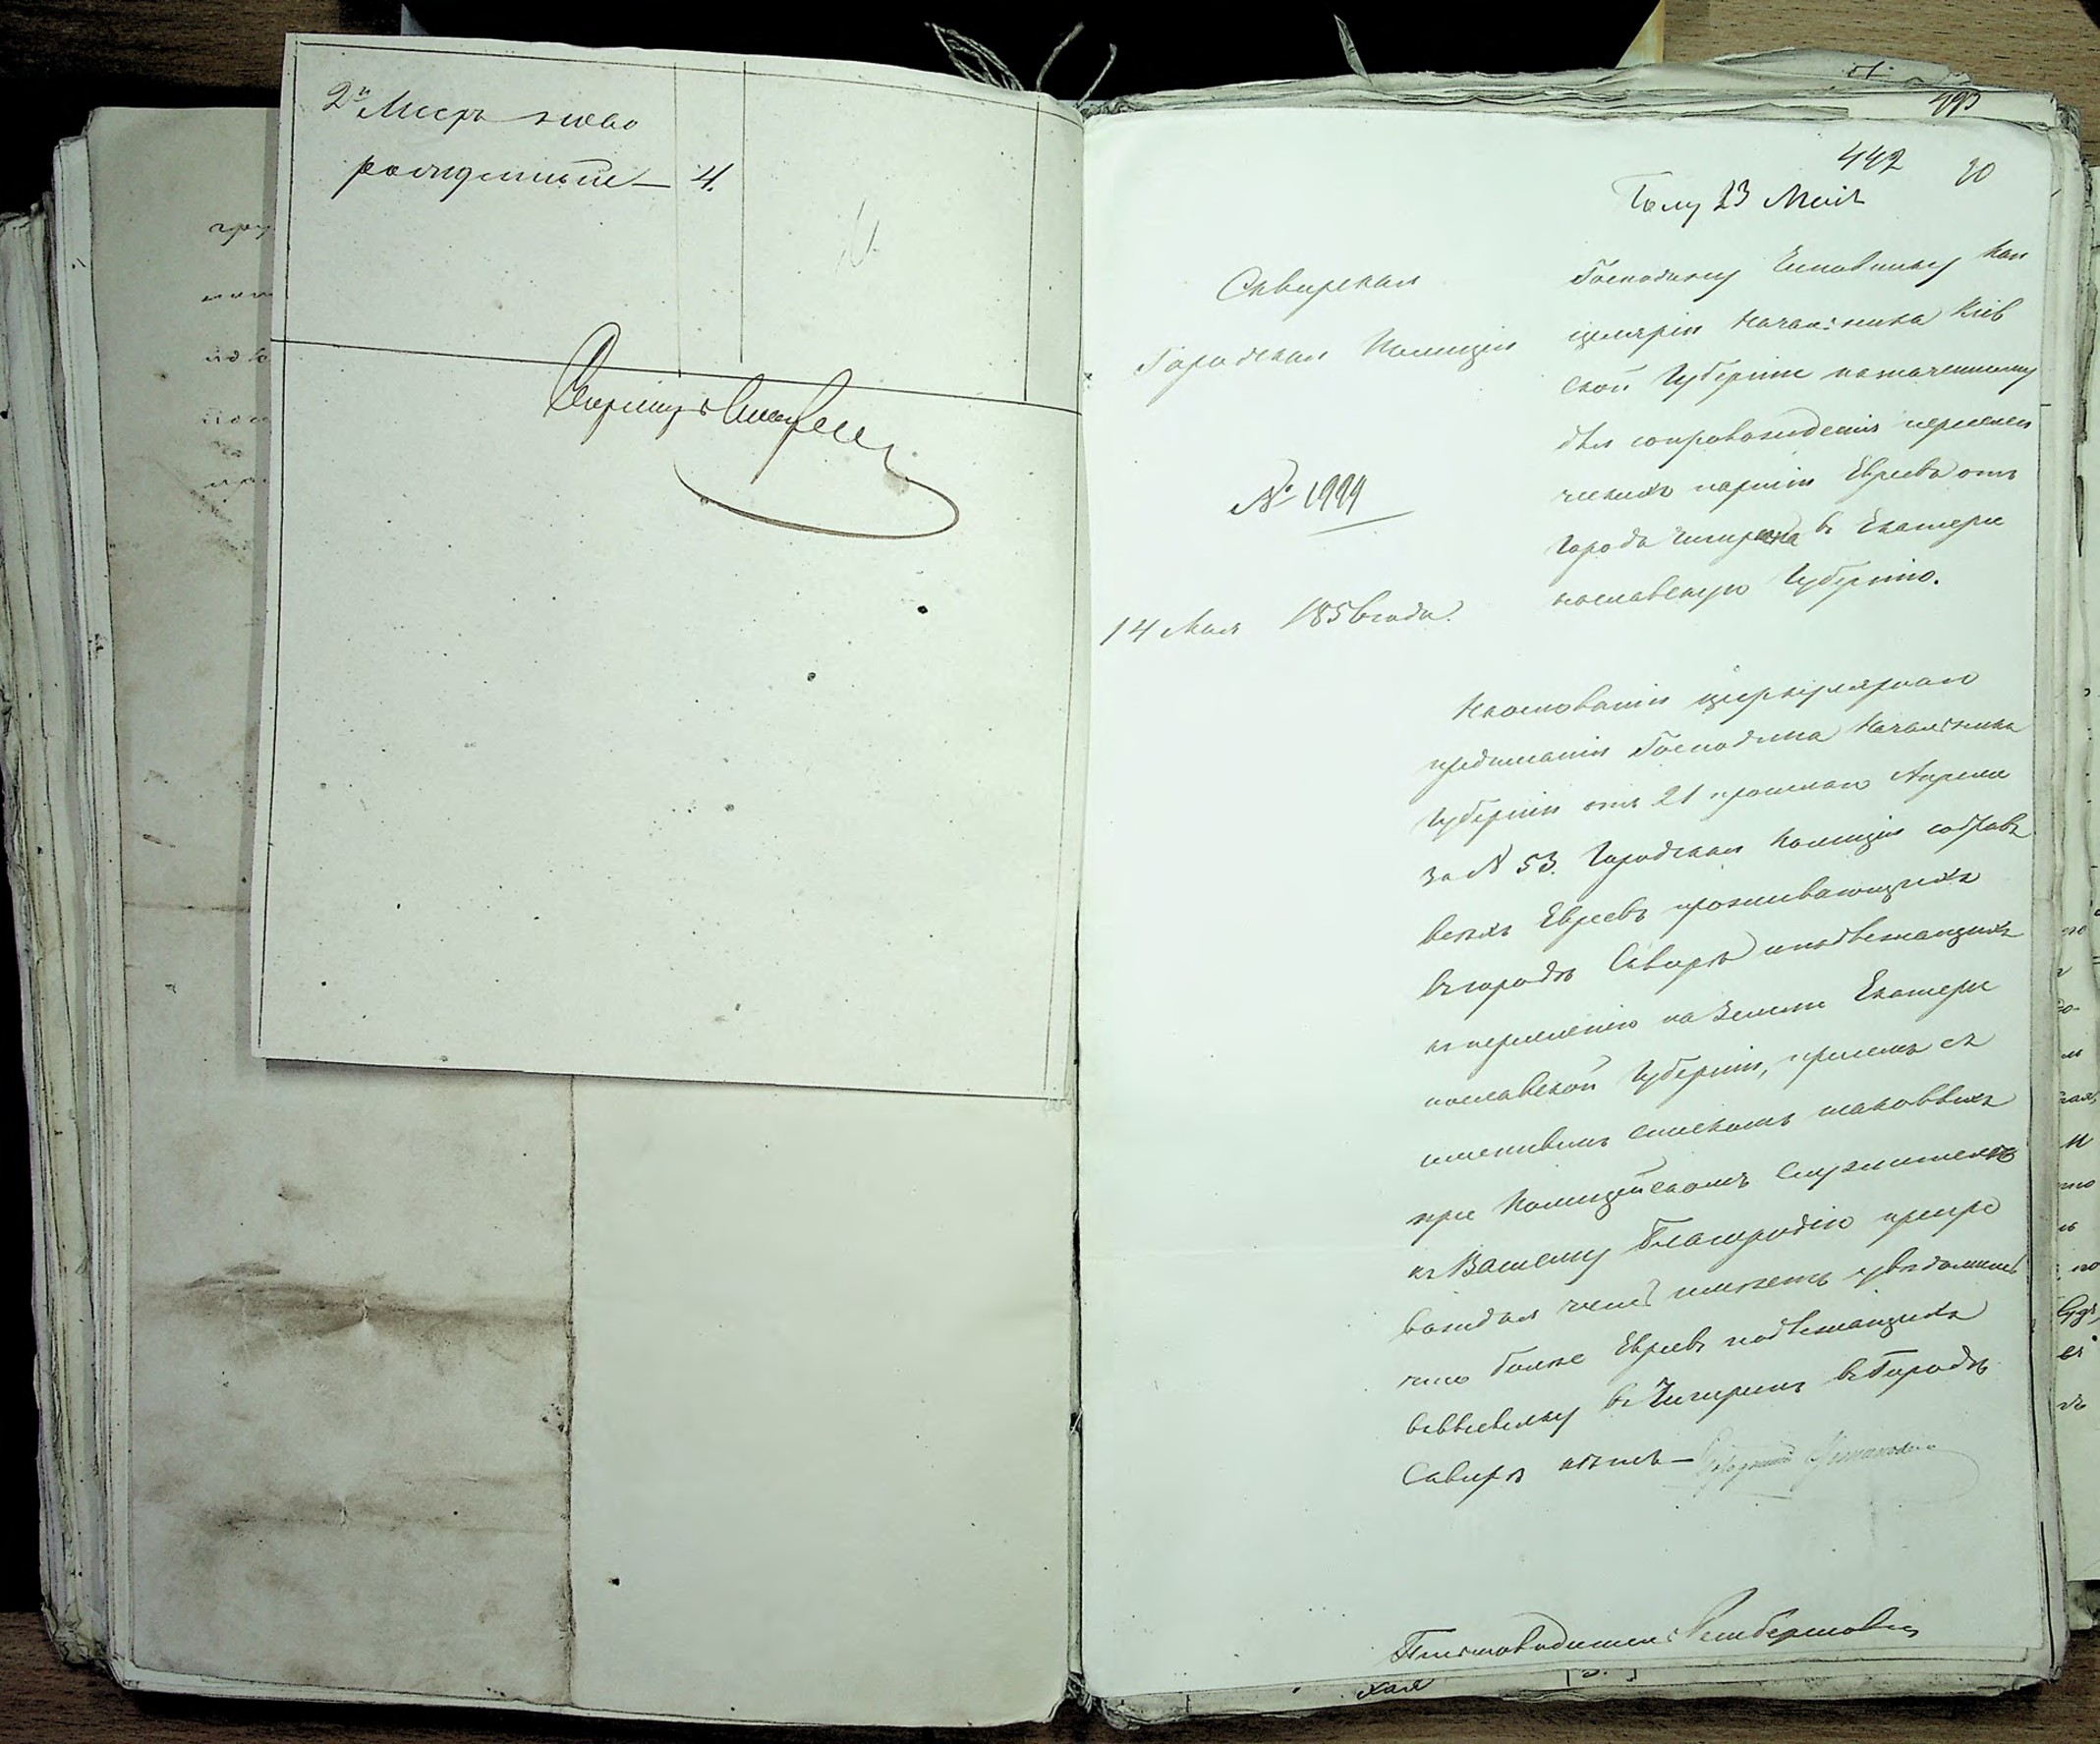 2й Месяцъ
рожденные — 4.
442
20
23 Мая
Сквирская
Городская Полиція
№ 1999
14 Мая 1856 года.
Господину Чиновнику Кан
целяріи Начальника Кіев
ской Губерніи назначенному
для сопровожденія переселен
ческихъ партіи Евреевъ отъ
Города Чигирина въ Екатери
нославскую Губернію.
На основаніи циркулярнаго
предписанія Господина Начальника
Губерніи отъ 21 прошлаго Апреля
за № 53. Городская Полиція собравъ
всехъ Евреевъ проживающихъ
въ городѣ Сквирѣ и подлежащихъ
къ переселенію на Земли Екатери
нославской Губерніи, при семъ съ
именнымъ спискомъ таковыхъ
при Полицейскомъ Служителѣ
къ Вашему Благородію препро
вождая честь имѣетъ увѣдомить
что болѣе Евреевъ подлежащихъ
къ высылку въ Чигиринъ въ Городѣ
Сквирѣ нѣтъ —
Городничій
Письмоводитель